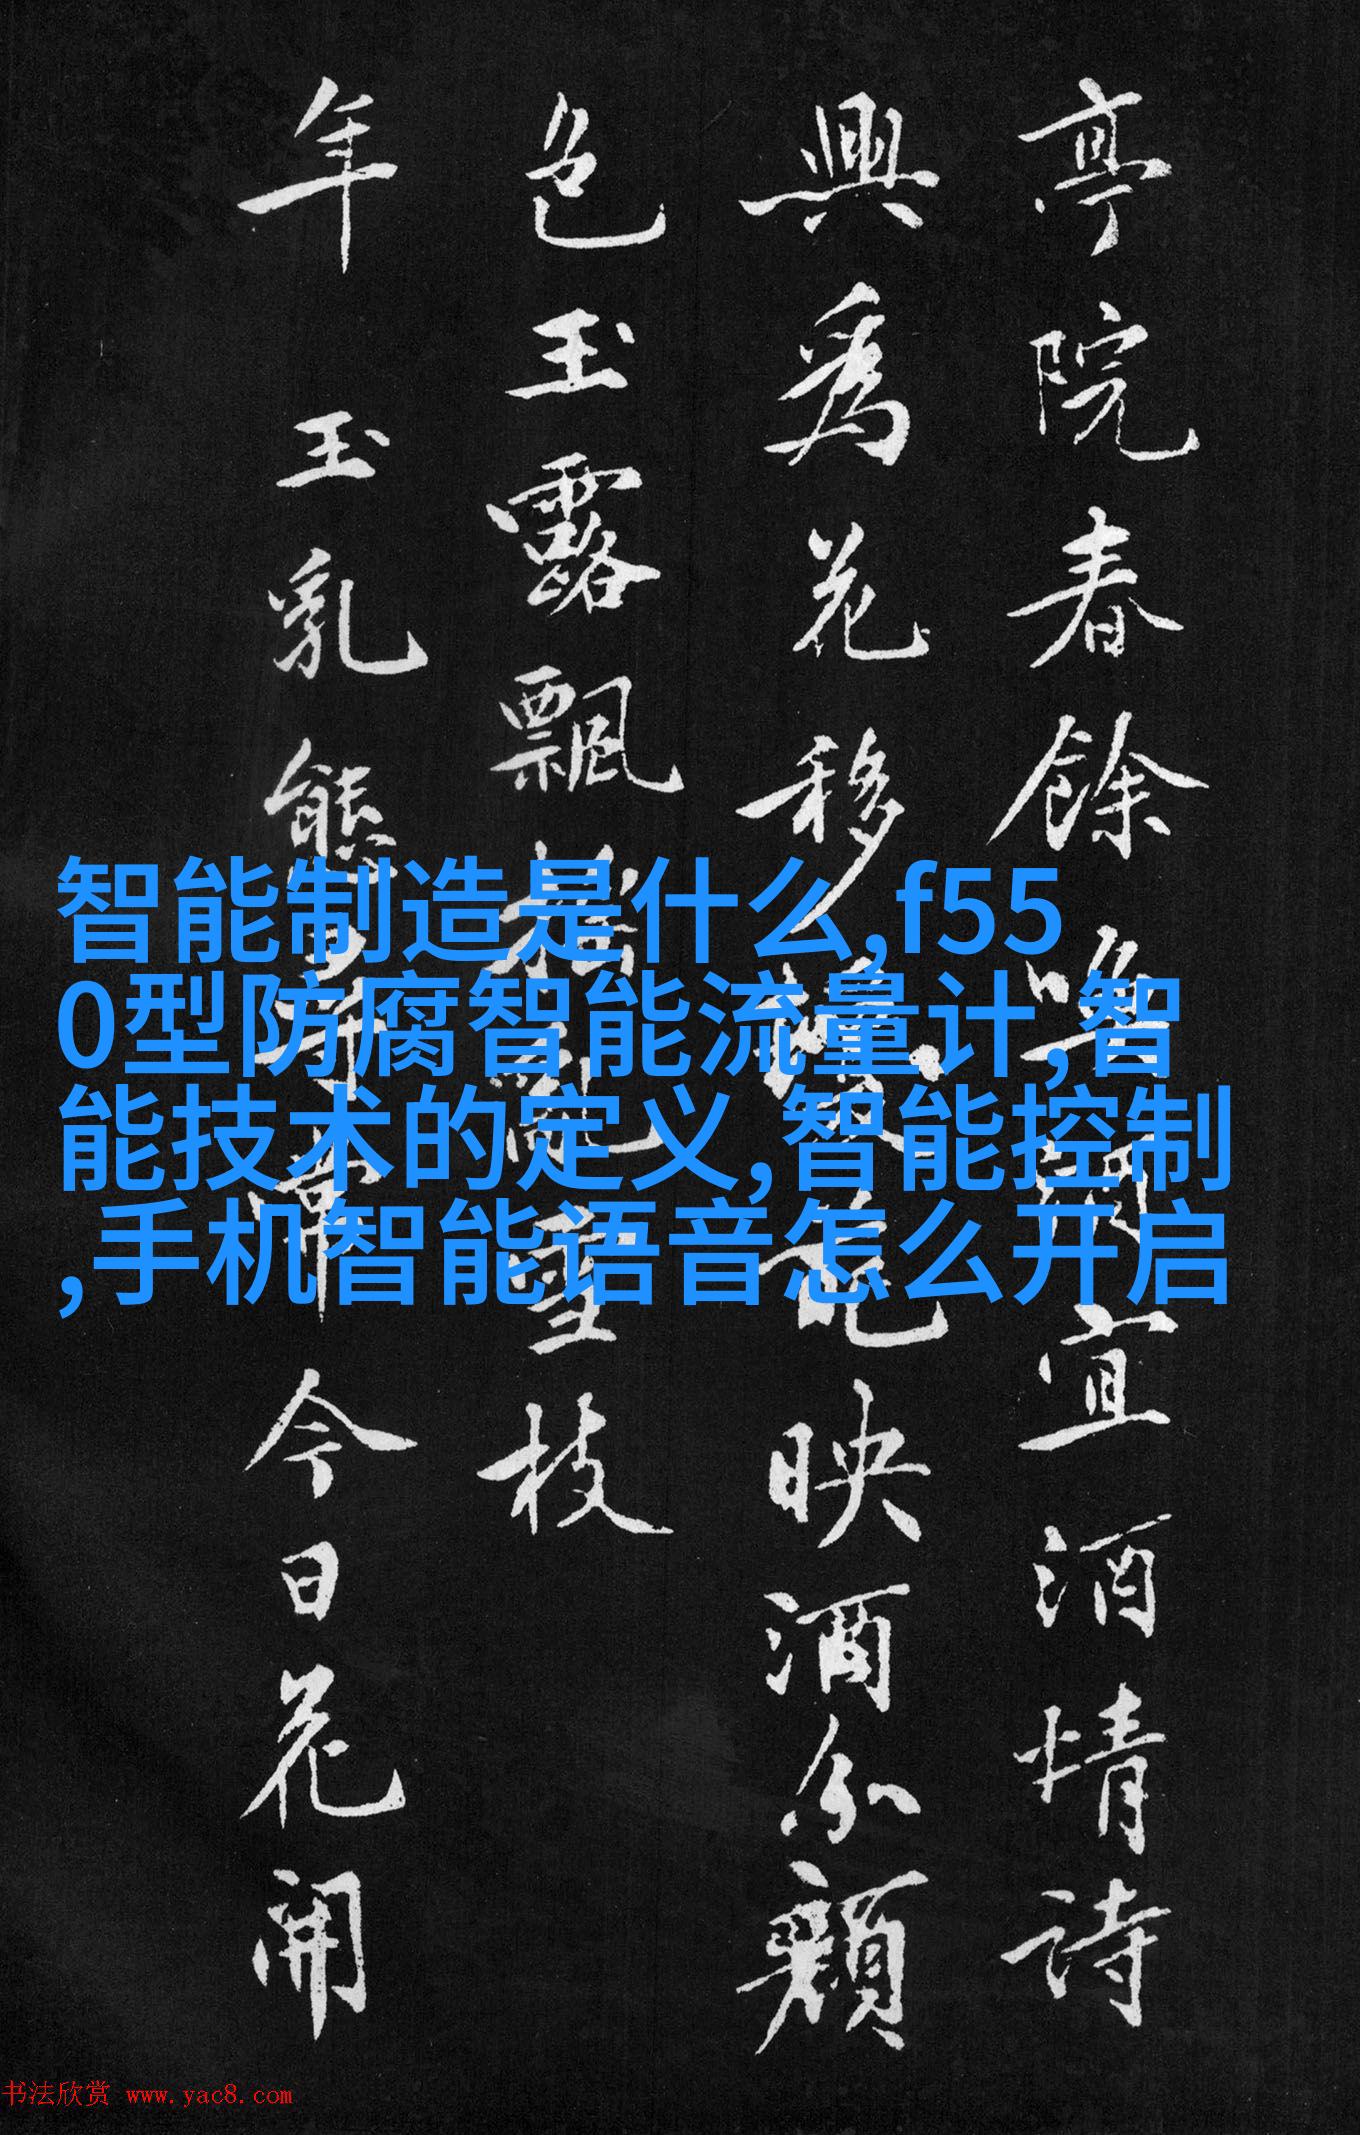 亭院春餘
宜酒情詩
興為花移
映酒分顏
色玉露飄
雪枝
年
玉乳態
今日花開
智能制造是什么,f55
0型防腐智能流量计,智
能技术的定义,智能控制
,手机智能语音怎么开启
书法欣赏 www.yac8.com